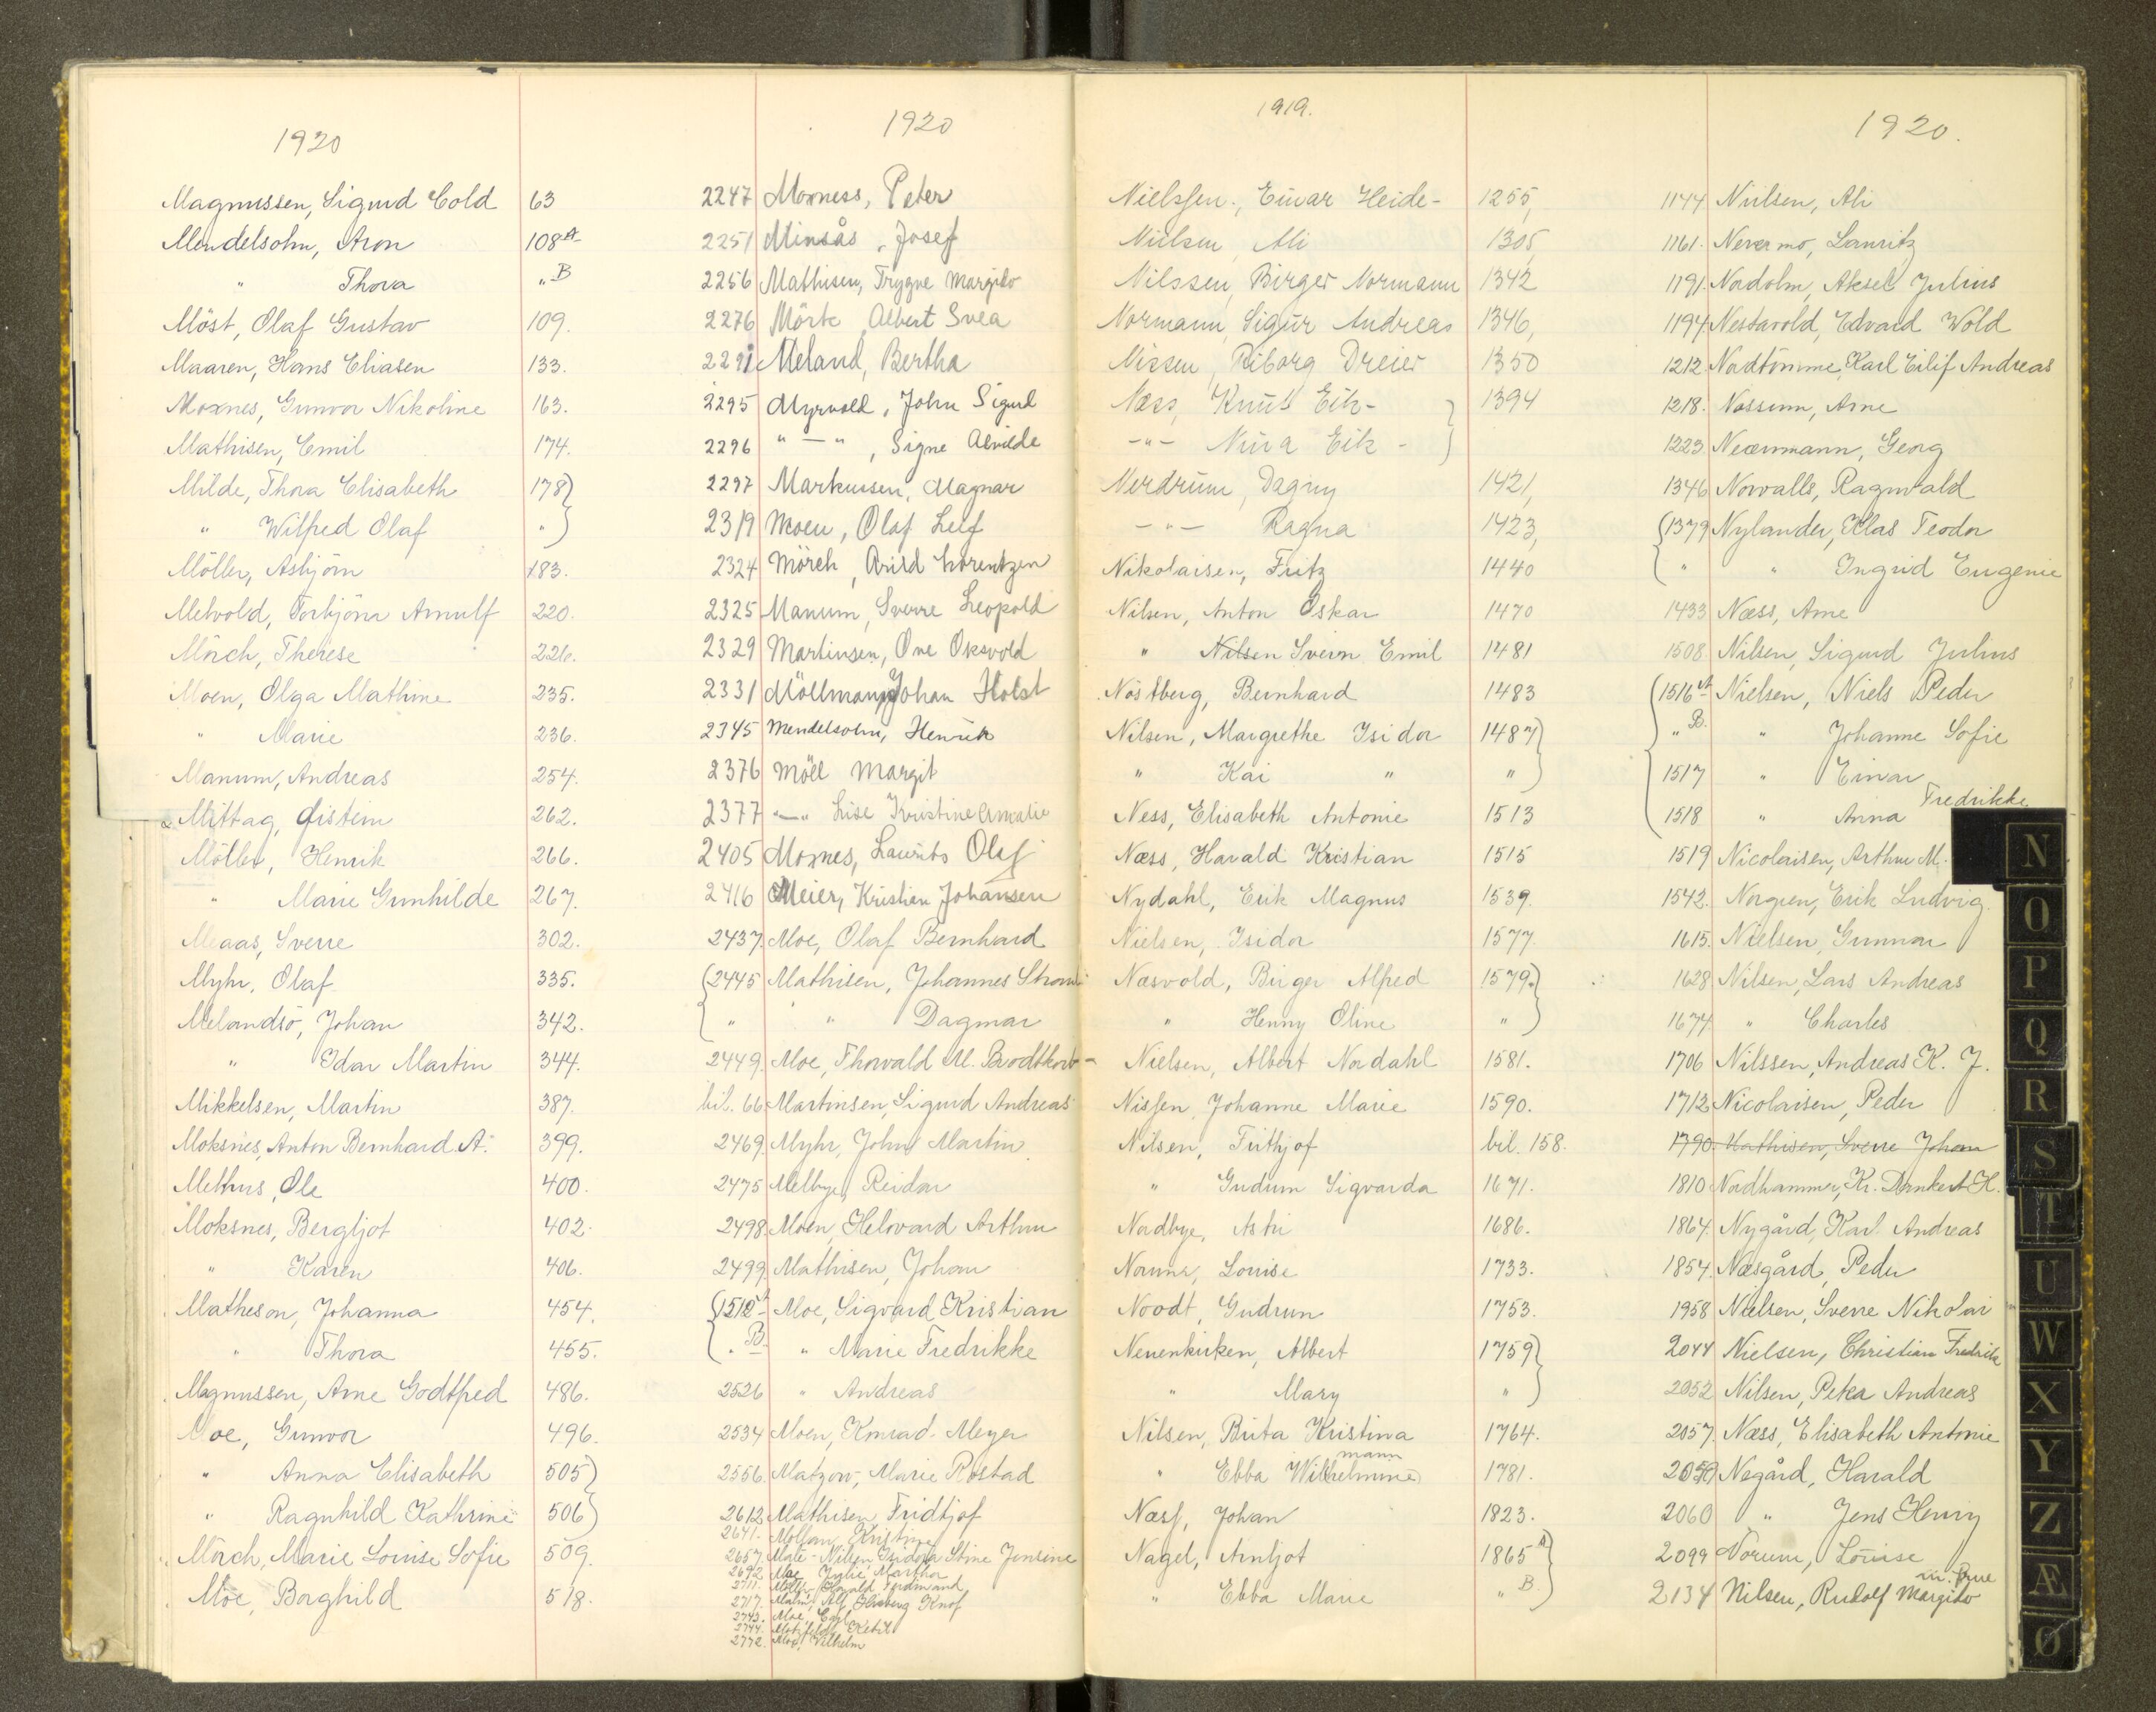 1920
Magnussen, Sigurd Cold 63
Mendelsohn, Aron 108 A
" Thora " B
Möst, Olaf Gustav 109.
Maaren, Hans Eliasen 133.
Moxnes, Gunvor Nikoline 163.
Mathisen, Emil 174.
Milde, Thora Elisabeth 178
" Wilfred Olaf "
Möller, Asbjörn 183.
Melvold, Torbjörn Arnulf 220.
Mörch, Therese 226.
Moen, Olga Mathine 235.
" Marie 236.
Manum, Andreas 254.
Mittag, Öistein 262.
Möller, Henrik 266.
" Marie Gunhilde 267.
Meaas, Sverre 302.
Myhr, Olaf 335.
Melandsö, Johan 342.
" Edar Martin 344.
Mikkelsen, Martin 387.
Moksnes, Anton Bernhard A. 399.
Methus, Ole 400.
Moksnes, Bergljot 402.
" Karen 406.
Matheson, Johanna 454.
" Thora 455.
Magnussen, Arne Godtfred 486.
Moe, Gunvor 496.
" Anna Elisabeth 505
" Ragnhild Kathrine 506
Mörch, Marie Louise Sofie 509.
Moe, Borghild 518.
1920
2247 Moxness, Peter
2251 Minsås, Josef
2256 Mathisen, Trygve Margido
2276 Mörk Albert Svea
2291 Meland, Bertha
2295 Myrvold, John Sigurd
2296 " — " , Signe Alvilde
2297 Markussen, Magnar
2319 Moen, Olaf Leif
2324 Mörch, Arild Lorentzen
2325 Manum, Sverre Leopold
2329 Martinsen, Ove Oksvold
2331 Möllmann, Johan Holst
2345 Mendelsohn, Henrik
2376 Möll Margit
2377 " — " Lise Kristine Amalie
2405 Moxnes, Laurits Olaf
2416 Meier, Kristian Johansen
2437 Moe, Olaf Bernhard
2445 Mathisen, Johannes
" " Dagmar
2449. Moe, Thorvald M. Brodtkorb
bil. 66 Martinsen, Sigurd Andreas
2469. Myhr, John Martin
2475 Melbye, Reidar
2498. Moen, Helvard Arthur
2499 Mathisen, Johan
1512 A Moe, Sigvard Kristian
" B. " Marie Fredrikke
2526 " Andreas
2534 Moen, Konrad Meyer
2556. Matzow, Marie Rostad
2612 Mathisen Fridtjof
2641. Kristine
2657. Nilsen Isidora Stine Jensine
2692 Moe, Julie Martha
2711. Möller, Harald Ferdinand
2717. Malm, Alf Knof
2743. Moe, Egil
2744. Ketil
2772. Moe, Vilhelm
1919.
Nielsſen, Einar Heide- 1255,
Nielsen, Ali 1305,
Nilssen, Birger Normann 1342
Normann, Sigur Andreas 1346,
Nissen, Riborg Dreier 1350
Næss, Knut Eik- 1394
-"- Nina Eik-
Nerdrum, Dagny 1421,
-"- Ragna 1423,
Nikolaisen, Fritz 1440
Nilsen, Anton Oskar 1470
" Nilsen Svein Emil 1481
Nöstberg, Bernhard 1483
Nilsen, Margrethe Isidor 1487
" Kai " "
Ness, Elisabeth Antonie 1513
Næss, Harald Kristian 1515
Nydahl, Erik Magnus 1539.
Nielsen, Isidor 1577.
Næsvold, Birger Alfred 1579.
" Henny Oline "
Nielsen, Albert Nordahl 1581.
Nisſen, Johanne Marie 1590.
Nilsen, Frithjof bil. 158.
" Gudrun Sigvarda 1671.
Nordbye, Astri 1686.
Norum, Louise 1733.
Noodt, Gudrun 1753.
Neuenkirken, Albert 1759
" Mary "
Nilsen, Brita Kristina 1764.
mann
" Ebba Wilhelmine 1781.
Næsſ, Johan 1823.
Nagel, Arnljot 1865 A
" Ebba Marie " B.
1920.
1144 Nielsen, Ali
1161. Nevermo, Lauritz
1191. Nordholm, Aksel Julius
1194 Nestavold, Edvard Wold
1212. Nordtömme, Karl Eilif Andreas
1218. Nossum, Arne
1223 Neermann, Georg
1346 Norvalls, Ragnvald
1379 Nylander, Klas Teodor
" " Ingrid Eugenie
1433 Næss, Arne
1508 Nilsen, Sigurd Julius
1516 A Nielsen, Niels Peder
" B. " Johanne Sofie
1517 " Einar
Fredrikke
1518 " Anna
1519 Nicolaisen, Arthur M.
1542. Norgren, Erik Ludvig.
1615. Nielsen, Gunnar
1628 Nilsen, Lars Andreas
1674 " Charles
1706 Nilssen, Andreas K. J.
1712 Nicolaisen, Peder
1790. Mathisen, Sverre Johan
1810 Nordhammer, Kr. Dankert H.
1864. Nygård, Karl Andreas
1854. Næsgård, Peder
1958 Nielsen, Sverre Nikolai
2044 Nielsen, Christian Fredrik
2052 Nilsen, Peter Andreas
2057. Næss, Elisabeth Antonie
2059 Negård, Harald
2060 " Jens Henry
2099 Norum, Louise
m. frue
2134 Nilsen, Rudolf Margido
N
O
P
Q
R
S
T
U
W
X
Y
Z
Æ
Ø